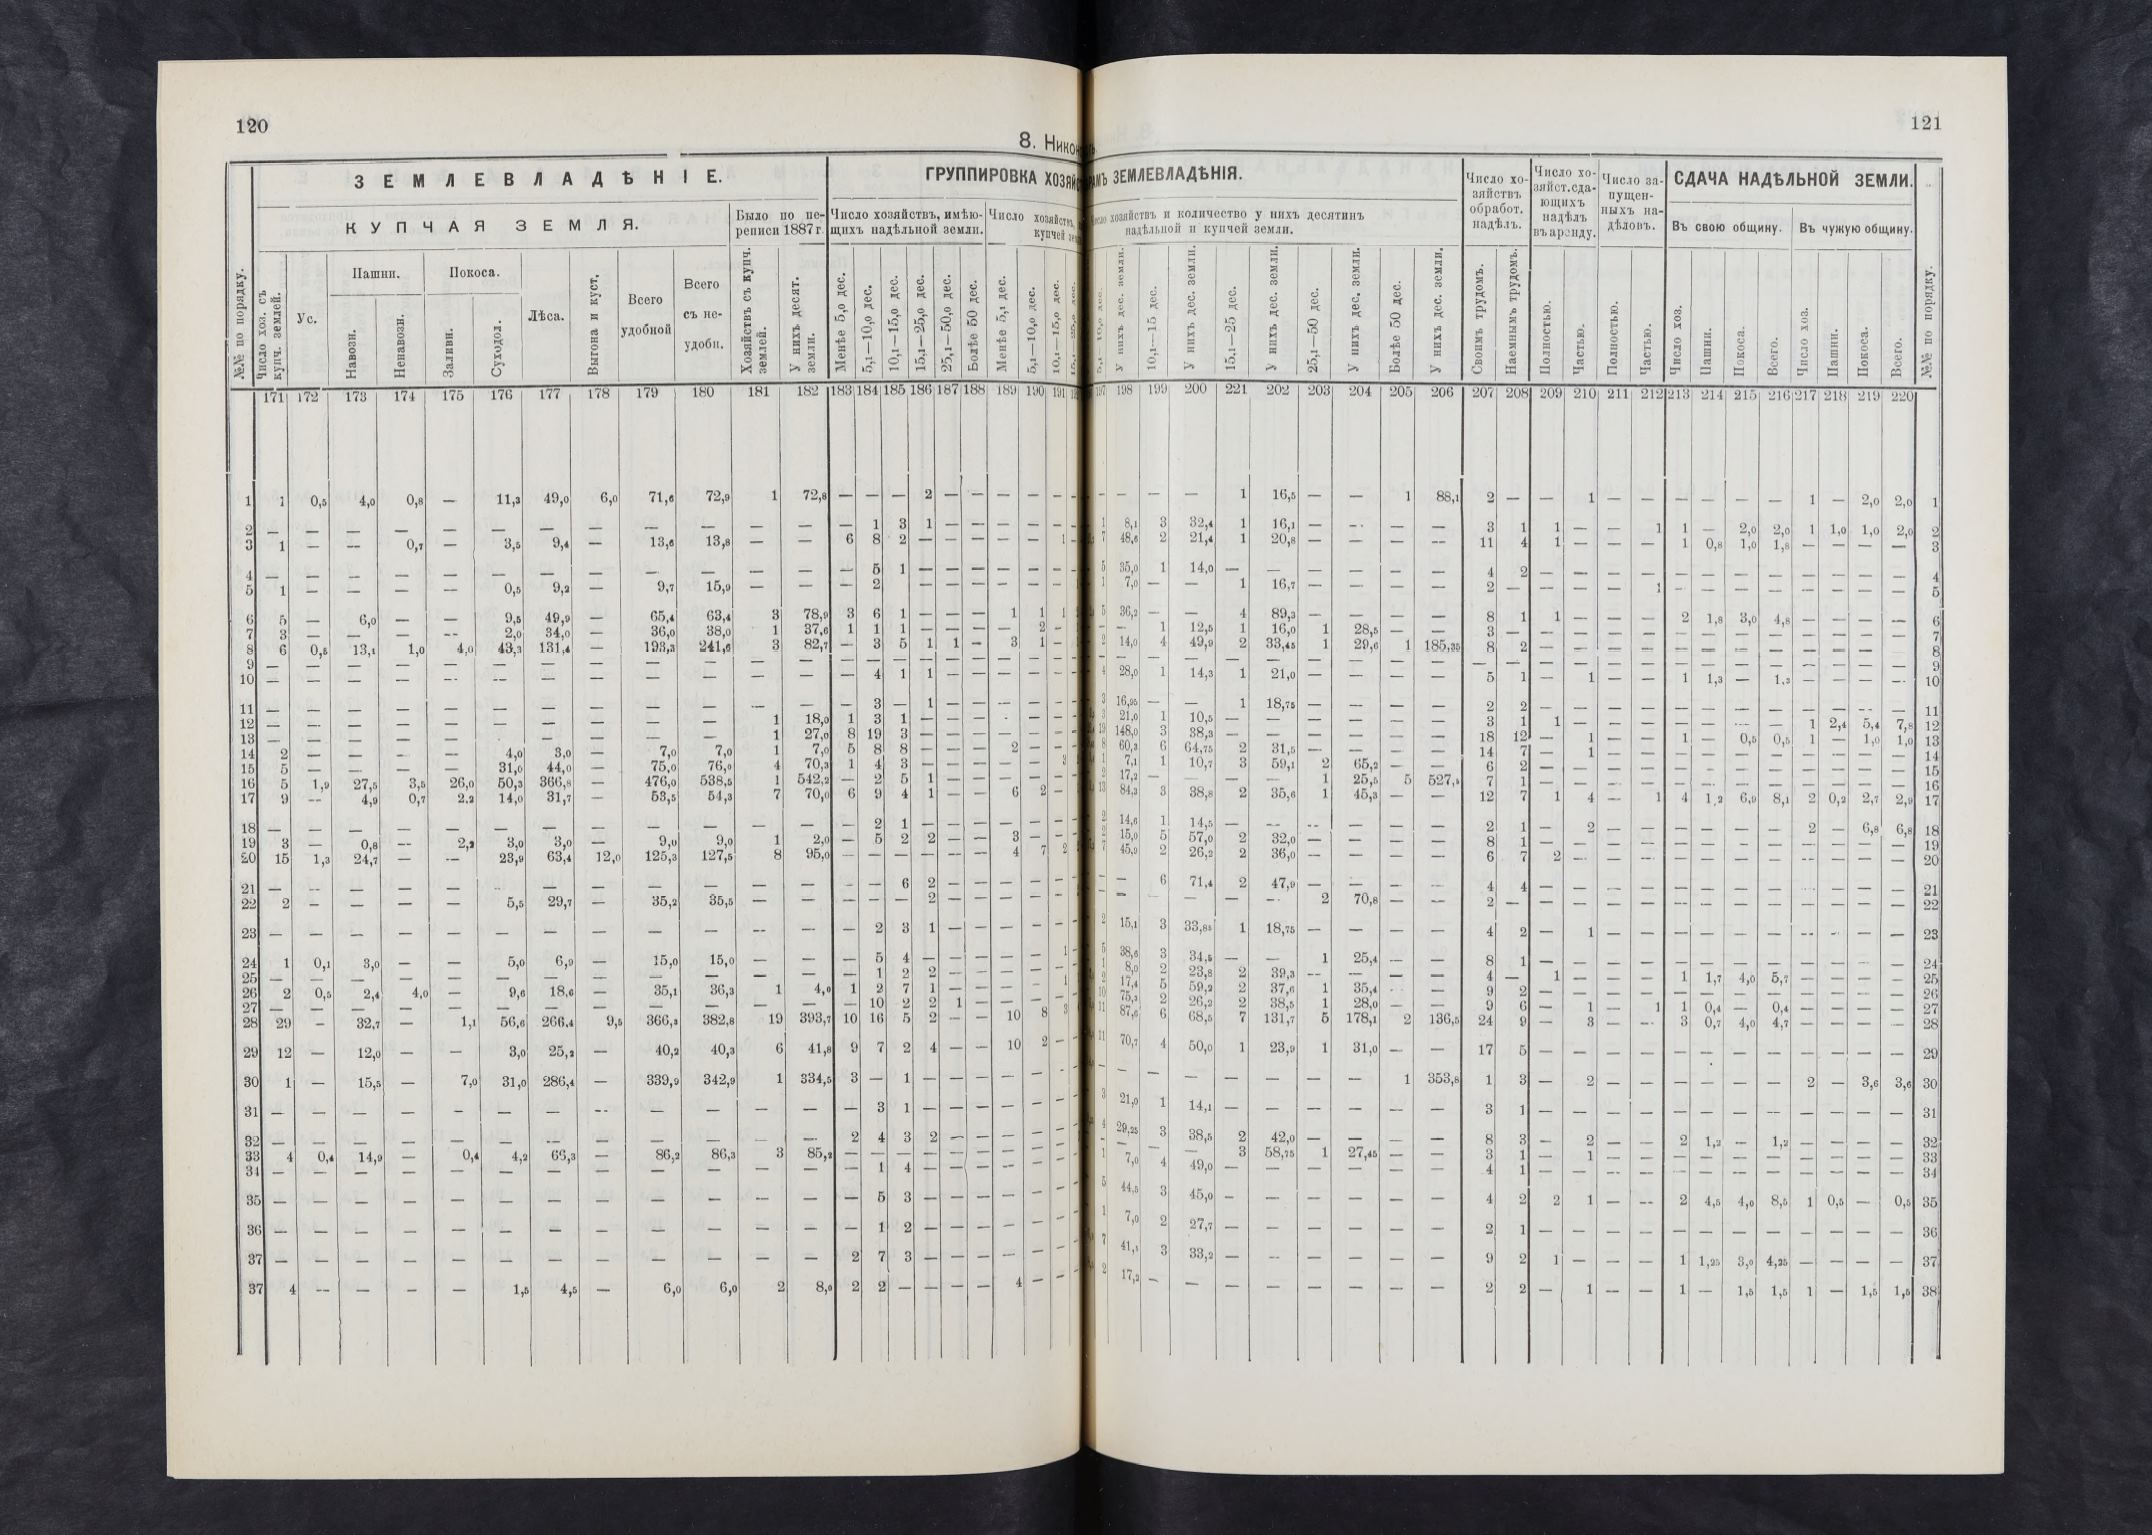 120
8. Никон
ЗЕМЛЕВЛАДѢНІЕ.
ГРУППИРОВКА ХОЗЯЙС
КУПЧАЯ ЗЕМЛЯ.
Было по пе-
реписи 1887 г.
Число хозяйствъ, имѣю-
щихъ надѣльной земли.
Число хозяйствъ,
купчей
№№ по порядку.
Число хоз. съ
купч. землей.
Ус.
Пашни.
Навозн.
Ненавозн.
Покоса.
Заливн.
Суходол.
Лѣса.
Выгона и куст.
Всего
удобной
Всего
съ не-
удобн.
Хозяйствъ съ купч.
землей.
У нихъ десят.
земли.
Менѣе 5,0 дес.
5,1—10,0 дес.
10,1—15,0 дес.
15,1—25,0 дес.
25,1—50,0 дес.
Болѣе 50 дес.
Менѣе 5,1 дес.
5,1—10,0 дес.
10,1—15,0 дес.
171 172 173 174 175 176 177 178 179 180 181 182 183 184 185 186 187 188 189 190 191
1 1 0,5 4,0 0,8 — 11,3 49,0 6,0 71,6 72,9 1 72,8 — — — 2 — — — — —
2 — — — — — — — — — — — — — 1 3 1 — — — — —
3 1 — — 0,7 — 3,5 9,4 — 13,6 13,8 — — 6 8 2 — — — — — 1
4 — — — — — — — — — — — — — 5 1 — — — — — —
5 1 — — — — 0,5 9,2 — 9,7 15,9 — — — 2 — — — — — — —
6 5 — 6,0 — — 9,5 49,9 — 65,4 63,4 3 78,9 3 6 1 — — — 1 1 1
7 3 — — — — 2,0 34,0 — 36,0 38,0 1 37,6 1 1 1 — — — — 2 —
8 6 0,5 13,1 1,0 4,0 43,3 131,4 — 193,3 241,6 3 82,7 — 3 5 1 1 — 3 1 —
9 — — — — — — — — — — — — — — — — — — — — —
10 — — — — — — — — — — — — — 4 1 1 — — — — —
11 — — — — — — — — — — — — — 3 — 1 — — — — —
12 — — — — — — — — — — 1 18,0 1 3 1 — — — — — —
13 — — — — — — — — — — 1 27,0 8 19 3 — — — — — —
14 2 — — — — 4,0 3,0 — 7,0 7,0 1 7,0 5 8 8 — — — 2 — —
15 5 — — — — 31,0 44,0 — 75,0 76,0 4 70,3 1 4 3 — — — — —
16 5 1,9 27,5 3,5 26,0 50,3 366,8 — 476,0 538,5 1 542,2 — 2 5 1 — — — — —
17 9 — 4,9 0,7 2,2 14,0 31,7 — 53,5 54,3 7 70,0 6 9 4 1 — — 6 2 —
18 — — — — — — — — — — — — — 2 1 — — — — — —
19 3 — 0,8 — 2,2 3,0 3,0 — 9,0 9,0 1 2,0 — 5 2 2 — — 3 — —
20 15 1,3 24,7 — — 23,9 63,4 12,0 125,3 127,5 8 95,0 — — — — — — 4 7 2
21 — — — — — — — — — — — — — — 6 2 — — — — —
22 2 — — — — 5,5 29,7 — 35,2 35,5 — — — — — 2 — — — —
23 — — — — — — — — — — — — — 2 3 1 — — — — —
24 1 0,1 3,0 — — 5,0 6,9 — 15,0 15,0 — — — 5 4 — — — — — 1
25 — — — — — — — — — — — — — 1 2 2 — — — — —
26 2 0,5 2,4 4,0 — 9,6 18,6 — 35,1 36,3 1 4,0 1 2 7 1 — — — — 1
27 — — — — — — — — — — — — — 10 2 2 1 — — — —
28 29 — 32,7 — 1,1 56,6 266,4 9,5 366,3 382,8 19 393,7 10 16 5 2 — — 10 8 3
29 12 — 12,0 — — 3,0 25,2 — 40,2 40,3 6 41,8 9 7 2 4 — — 10 2 —
30 1 — 15,5 — 7,0 31,0 286,4 — 339,9 342,9 1 334,5 3 — 1 — — — — — —
31 — — — — — — — — — — — — — 3 1 — — — — — —
32 — — — — — — — — — — — — 2 4 3 2 — — — — —
33 4 0,4 14,9 — 0,4 4,2 66,3 — 86,2 86,3 3 85,2 — — — — — — — —
34 — — — — — — — — — — — — — 1 4 — — — — — —
35 — — — — — — — — — — — — — 5 3 — — — — — —
36 — — — — — — — — — — — — — 1 2 — — — — — —
37 — — — — — — — — — — — — 2 7 3 — — — — — —
37 4 — — — — 1,5 4,5 — 6,0 6,0 2 8,0 2 2 — — — — 4 — —
121
РАМЪ ЗЕМЛЕВЛАДѢНІЯ.
хозяйствъ и количество у нихъ десятинъ
надѣльной и купчей земли.
Число хо-
зяйствъ
обработ.
надѣлъ.
Число хо-
зяйст.сда-
ющихъ
надѣлъ
въ аренду.
Число за-
пущен-
ныхъ на-
дѣловъ.
СДАЧА НАДѢЛЬНОЙ ЗЕМЛИ.
Въ свою общину.
Въ чужую общину.
У нихъ дес. земли.
10,1—15 дес.
У нихъ дес. земли.
15,1—25 дес.
У нихъ дес. земли.
25,1—50 дес.
У нихъ дес. земли.
Болѣе 50 дес.
У нихъ дес. земли.
Своимъ трудомъ.
Наемнымъ трудомъ.
Полностью.
Частью.
Полностью.
Частью.
Число хоз.
Пашни.
Покоса.
Всего.
Число хоз.
Пашни.
Покоса.
Всего.
№№ по порядку.
197 198 199 200 221 202 203 204 205 206 207 208 209 210 211 212 213 214 215 216 217 218 219 220
— — — — 1 16,5 — — 1 88,1 2 — — 1 — — — — — — 1 — 2,0 2,0 1
1 8,1 3 32,4 1 16,1 — — — — 3 1 1 — — 1 1 — 2,0 2,0 1 1,0 1,0 2,0 2
7 48,6 2 21,4 1 20,8 — — — — 11 4 1 — — — 1 0,8 1,0 1,8 — — — — 3
5 35,0 1 14,0 — — — — — — 4 2 — — — — — — — — — — — — 4
1 7,0 — — 1 16,7 — — — — 2 — — — — 1 — — — — — — — — 5
5 36,2 — — 4 89,3 — — — — 8 1 1 — — — 2 1,8 3,0 4,8 — — — — 6
— — 1 12,5 1 16,0 1 28,5 — — 3 — — — — — — — — — — — — — 7
2 14,0 4 49,9 2 33,45 1 29,6 1 185,35 8 2 — — — — — — — — — — — — 8
— — — — — — — — — — — — — — — — — — — — — — — — 9
4 28,0 1 14,3 1 21,0 — — — — 5 1 — 1 — — 1 1,3 — 1,3 — — — — 10
3 16,95 — — 1 18,75 — — — — 2 2 — — — — — — — — — — — — 11
3 21,0 1 10,5 — — — — — — 3 1 1 — — — — — — — 1 2,4 5,4 7,8 12
19 148,0 3 38,3 — — — — — — 18 12 — 1 — — 1 — 0,5 0,5 1 — 1,0 1,0 13
8 60,3 6 64,75 2 31,5 — — — — 14 7 — 1 — — — — — — — — — — 14
1 7,1 1 10,7 3 59,1 2 65,2 — — 6 2 — — — — — — — — — — — — 15
2 17,2 — — — — 1 25,5 5 527,5 7 1 — — — — — — — — — — — — 16
13 84,3 3 38,8 2 35,6 1 45,3 — — 12 7 1 4 — 1 4 1,2 6,9 8,1 2 0,2 2,7 2,9 17
2 14,6 1 14,5 — — — — — — 2 1 — 2 — — — — — — 2 — 6,8 6,8 18
2 15,0 5 57,0 2 32,0 — — — — 8 1 — — — — — — — — — — — — 19
7 45,9 2 26,2 2 36,0 — — — — 6 7 2 — — — — — — — — — — — 20
— — 6 71,4 2 47,9 — — — — 4 4 — — — — — — — — — — — — 21
— — — — — — 2 70,8 — — 2 — — — — — — — — — — — — — 22
2 15,1 3 33,85 1 18,75 — — — — 4 2 — 1 — — — — — — — — — — 23
5 38,6 3 34,5 — — 1 25,4 — — 8 1 — — — — — — — — — — — — 24
1 8,0 2 23,8 2 39,3 — — — — 4 — 1 — — — 1 1,7 4,0 5,7 — — — — 25
2 17,4 5 59,2 2 37,6 1 35,4 — — 9 2 — — — — — — — — — — — — 26
10 75,3 2 26,2 2 38,5 1 28,0 — — 9 6 — 1 — 1 1 0,4 — 0,4 — — — — 27
11 87,6 6 68,5 7 131,7 5 178,1 2 136,5 24 9 — 3 — — 3 0,7 4,0 4,7 — — — — 28
11 70,7 4 50,0 1 23,9 1 31,0 — — 17 5 — — — — — — — — — — — — 29
— — — — — — — — 1 353,8 1 3 — 2 — — — — — — 2 — 3,6 3,6 30
3 21,0 1 14,1 — — — — — — 3 1 — — — — — — — — — — — — 31
4 29,25 3 38,5 2 42,0 — — — — 8 3 — 2 — — 2 1,2 — 1,2 — — — — 32
— — — — 3 58,75 1 27,45 — — 3 1 — 1 — — — — — — — — — — 33
1 7,0 4 49,0 — — — — — — 4 1 — — — — — — — — — — — — 34
5 44,5 3 45,0 — — — — — — 4 2 2 1 — — 2 4,5 4,0 8,5 1 0,5 — 0,5 35
1 7,0 2 27,7 — — — — — — 2 1 — — — — — — — — — — — — 36
7 41,1 3 33,2 — — — — — — 9 2 1 — — — 1 1,25 3,0 4,25 — — — — 37
2 17,2 — — — — — — — — 2 2 — 1 — — 1 — 1,5 1,5 1 — 1,5 1,5 38